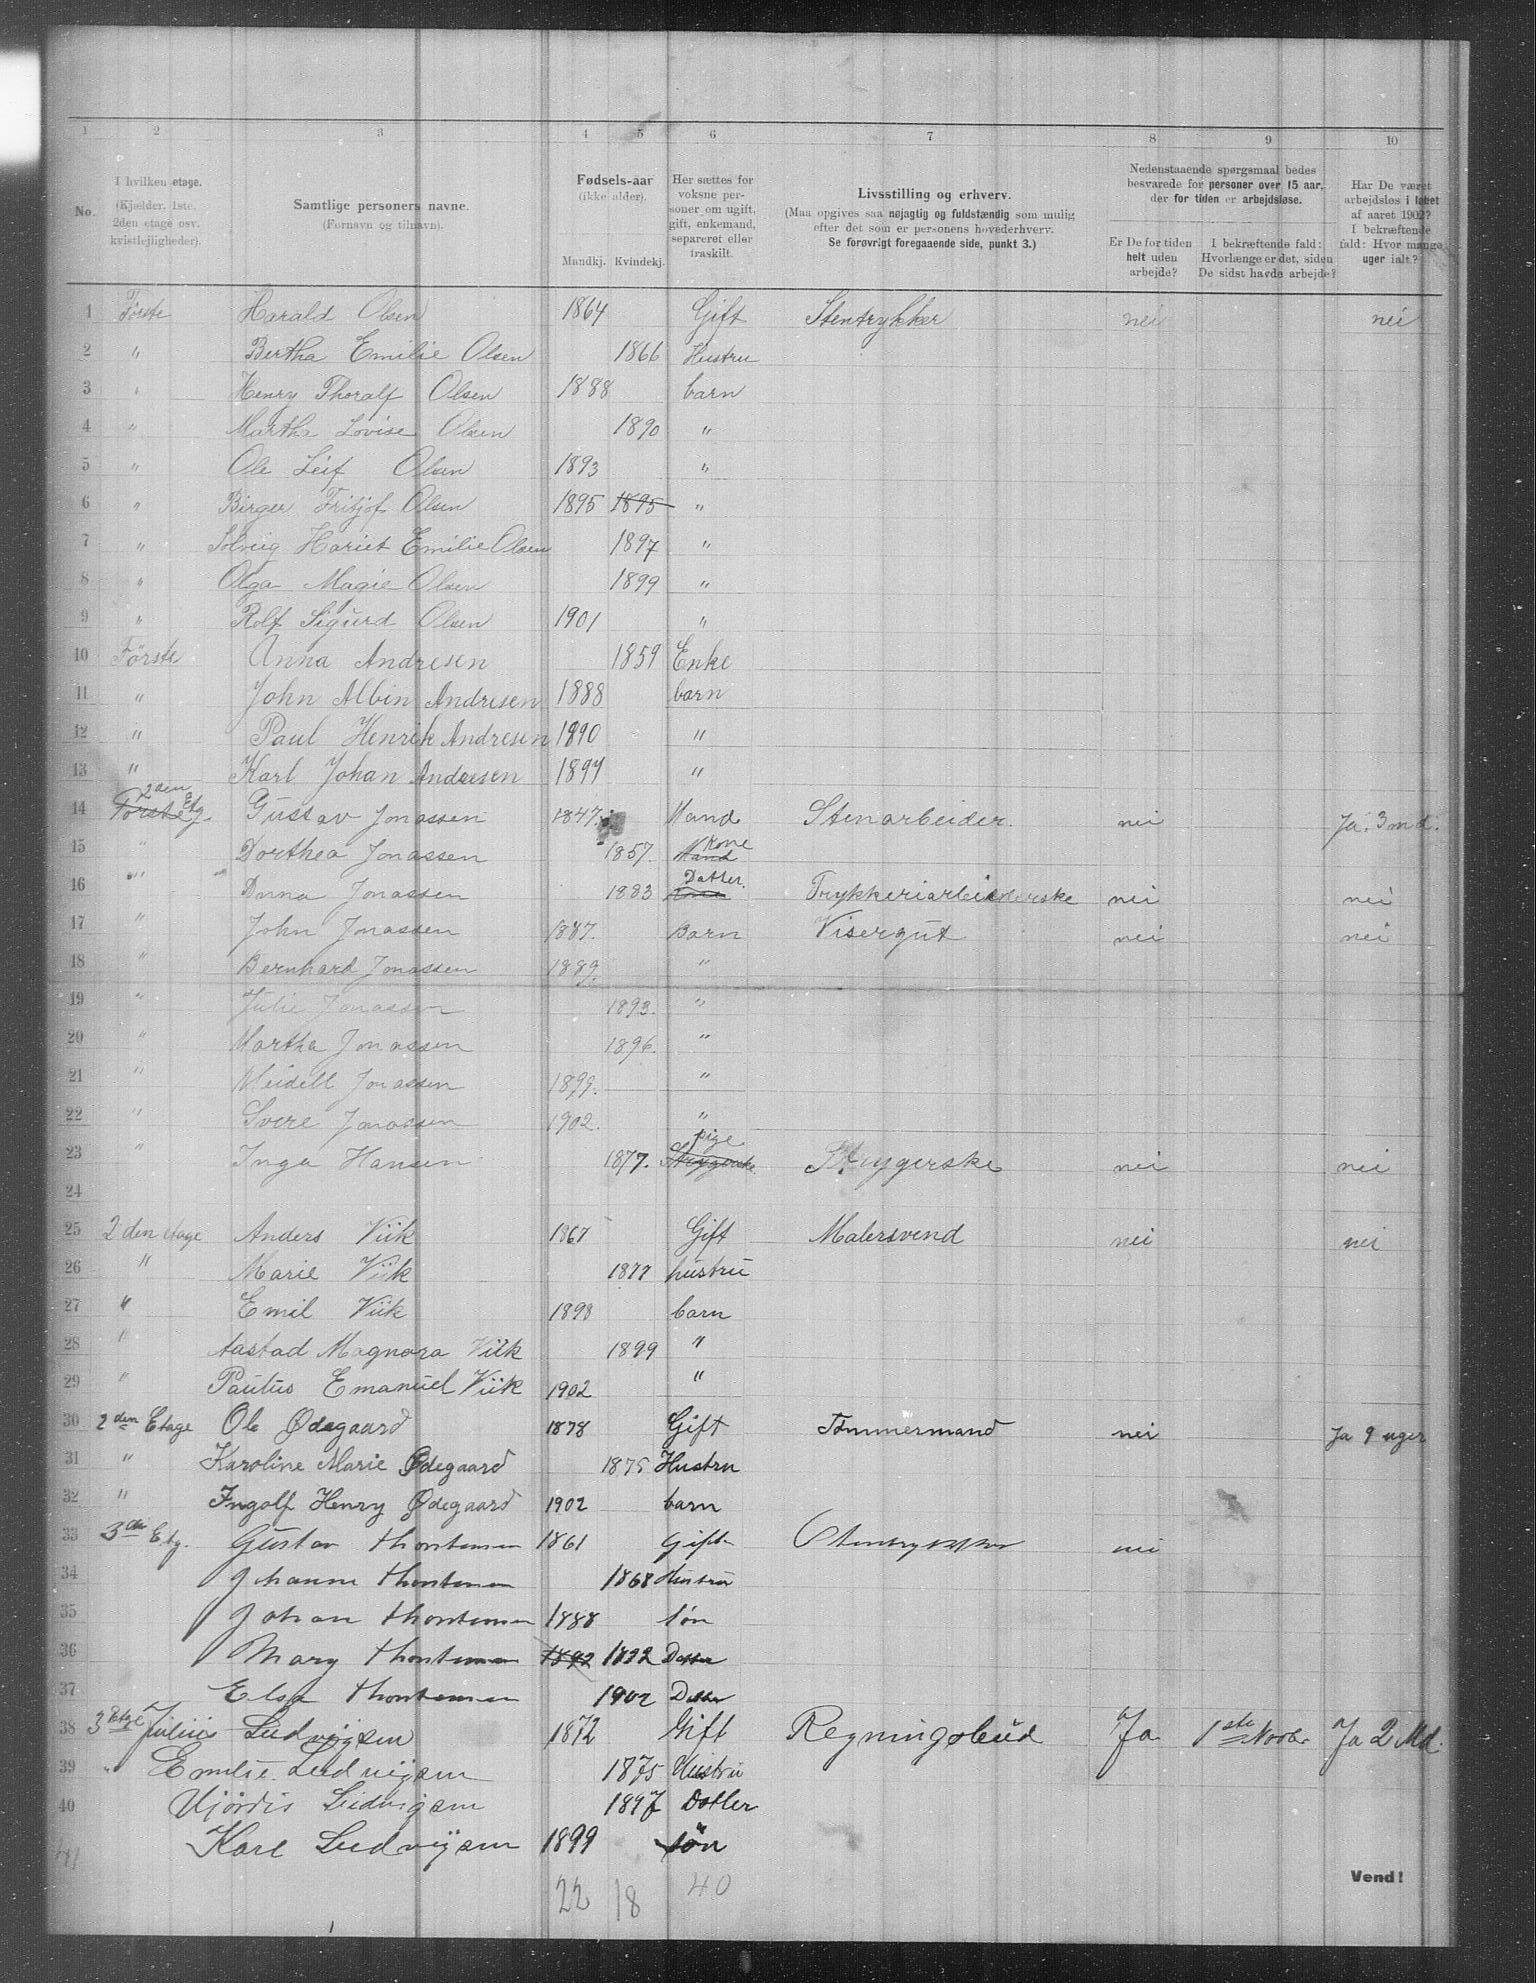 1 2 3 4 5 6 7 8 9 10
No. I hvilken etage. (Kjælder, 1ste, 2den etage osv. kvistlejligheder). Samtlige personers navne. (Fornavn og tilnavn). Fødsels-aar (ikke alder). Mandkj. Kvindekj. Her sættes for voksne personer om ugift, gift, enkemand, separeret eller fraskilt. Livsstilling og erhverv. (Maa opgives saa nøjagtig og fuldstændig som mulig efter det som er personens hovederhverv. Se forøvrigt foregaaende side, punkt 3.) Nedenstaaende spørgsmaal bedes besvarede for personer over 15 aar, der for tiden er arbejdsløse. Er De for tiden helt uden arbejde? I bekræftende fald: Hvorlænge er det, siden De sidst havde arbejde? Har De været arbejdsløs i løbet af aaret 1902? I bekræftende fald: Hvor mange uger ialt?
1 Første Harald Olsen 1864 Gift Stentrykker nei nei
2 " Bertha Emilie Olsen 1866 Hustru
3 " Henry Thoralf Olsen 1888 barn
4 " Martha Lovise Olsen 1890 "
5 " Ole Leif Olsen 1893 "
6 " Birger Fritjof Olsen 1895 1895 "
7 " Solveig Hariet Emilie Olsen 1897 "
8 " Olga Magie Olsen 1899 "
9 " Rolf Sigurd Olsen 1901 "
10 Første Anna Andresen 1859 Enke
11 " John Albin Andresen 1888 barn
12 " Paul Henrik Andresen 1890 "
13 " Karl Johan Andresen 1894 "
14 Første 2den Etg. Gustav Jonassen 1847 Mand Stenarbeider nei Ja. 3 md.
15 " Dorthea Jonassen 1857. Mand Kone
16 " Anna Jonassen 1883 Datter. Trykkeriarbeiderske nei nei
17 " John Jonassen 1887. Barn Visergut nei nei
18 " Bernhard Jonassen 1889. "
19 " Julie Jonassen 1893. "
20 " Martha Jonassen 1896. "
21 " Meidell Jonassen 1899. "
22 " Svere Jonassen 1902. "
23 " Inga Hansen 1877. Strygerske pige Strygerske nei nei
24
25 2 den etage Anders Viik 1867 Gift Malersvend nei nei
26 " Marie Viik 1877 hustru
27 " Emil Viik 1898 barn
28 " Aastad Magnora Viik 1899 "
29 " Paulus Emanuel Viik 1902 "
30 2den Etage Ole Ødegaard 1878 Gift Tømmermand nei Ja 9 uger
31 " Karoline Marie Ødegaard 1875 Hustru
32 " Ingolf Henry Ødegaard 1902 barn
33 3die Etg. Gustav Thorstensen 1861 Gift Stentrykker nei
34 Johanne Thorstensen 1868 Hustru
35 Johan Thorstensen 1888 søn
36 Mary Thorstensen 1892 1892 Datter
37 Elsa Thorstensen 1902 Datter
38 3 Etage Julius Ludvigsen 1872 Gift Regningsbud Ja 1ste Novbr. Ja 2 Md.
39 " Emilie Ludvigsen 1875 Hustru
40 Hjördis Ludvigsen 1897 Datter
41 Karl Ludvigsen 1899 søn
22 18 40
Vend!